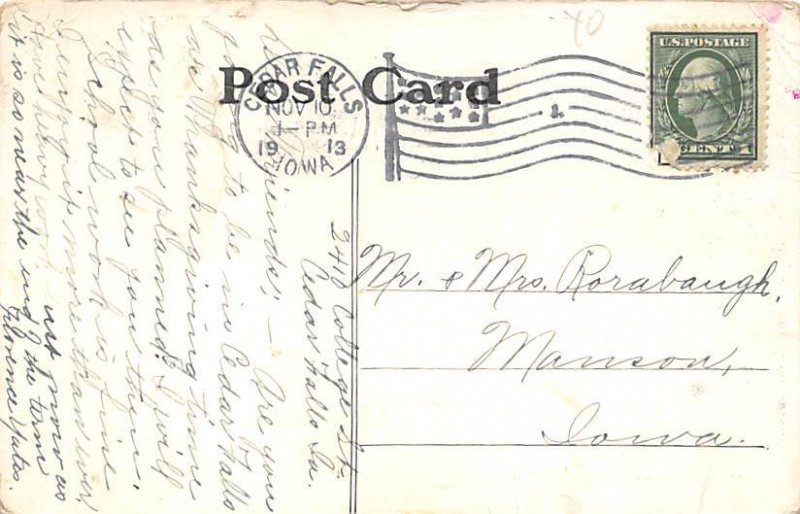 Post Card
CEDAR FALLS
NOV 10
1-PM
1913
IOWA
1.
U.S. POSTAGE
40
2410 College St.
Cedar Falls Ia.
Friends; — Are you
going to be in Cedar Falls
at Thanksgiving time
as you planned? I will
expect to see you then.
School work is fine
enjoy it more than ever
Am heavy work just now as
it is so near the end of the term
Florence Yates.
Mr. & Mrs. Rorabaugh,
Manson,
Iowa.